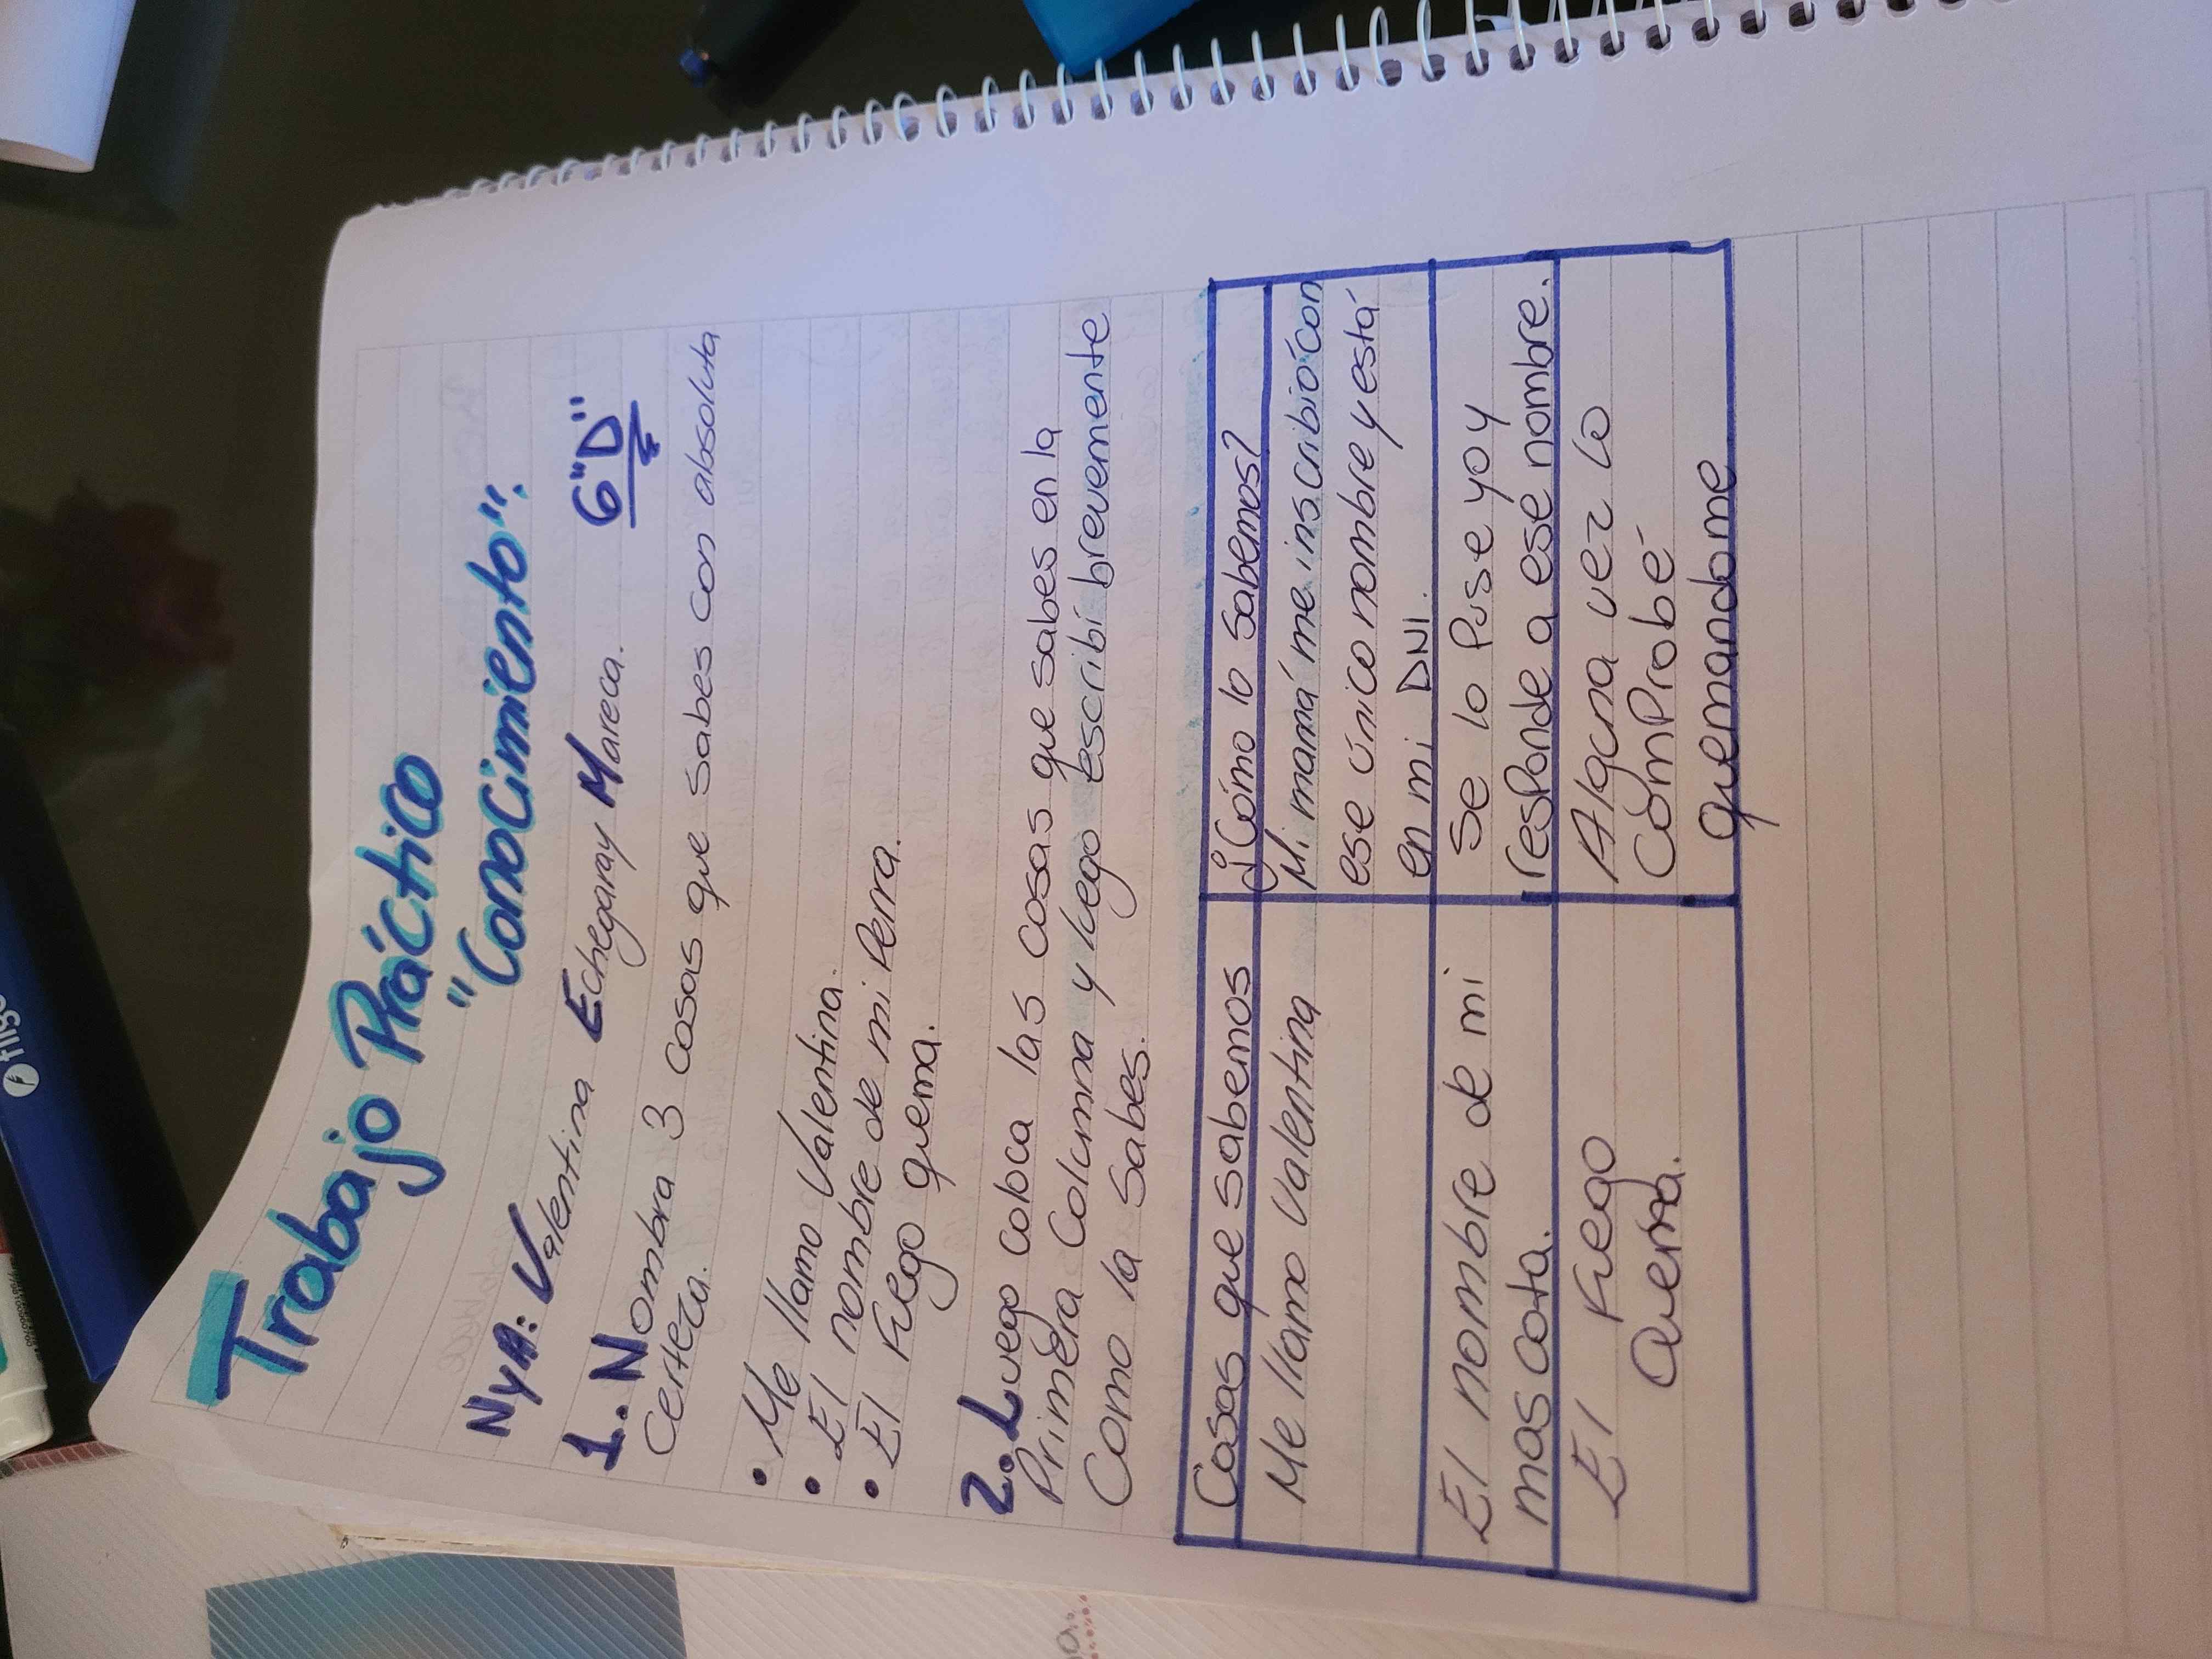 Trabajo Práctico
"Conocimiento".
NyA: Valentina Echegaray Mareca. 6"D"
1.. Nombra 3 cosas que sabes con absoluta
Certeza.
• Me llamo Valentina.
• El nombre de mi Perra.
• El Fuego quema.
2. Luego coloca las cosas que sabes en la
Primera Columna y luego escribí brevemente
Como la sabes.
Cosas que sabemos
¿Cómo lo sabemos?
Me llamo Valentina
Mi mamá me inscribió con
ese único nombre y está
en mi DNI.
El nombre de mi
mascota.
Se lo Puse yo y
responde a ese nombre.
El Fuego
Quema.
Alguna vez lo
ComProbé
quemandome